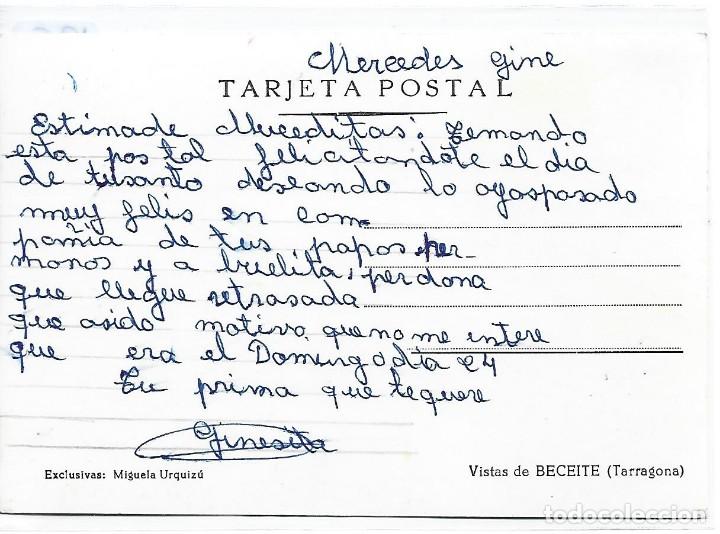 Mercedes Gine
TARJETA POSTAL
Estimade Merceditas: Temando
esta postal felicitandote el dia
de tusanto deseando lo ayaspasado
muy felis en com
pañia de tus papas her
manos y a buelita, perdona
que llegue retrasada
que asido motivo, queno me entere
que era el Domingo dia 24
Tu prima que tequere
Ginesita
Exclusivas: Miguela Urquizú
Vistas de BECEITE (Tarragona)
todocoleccion